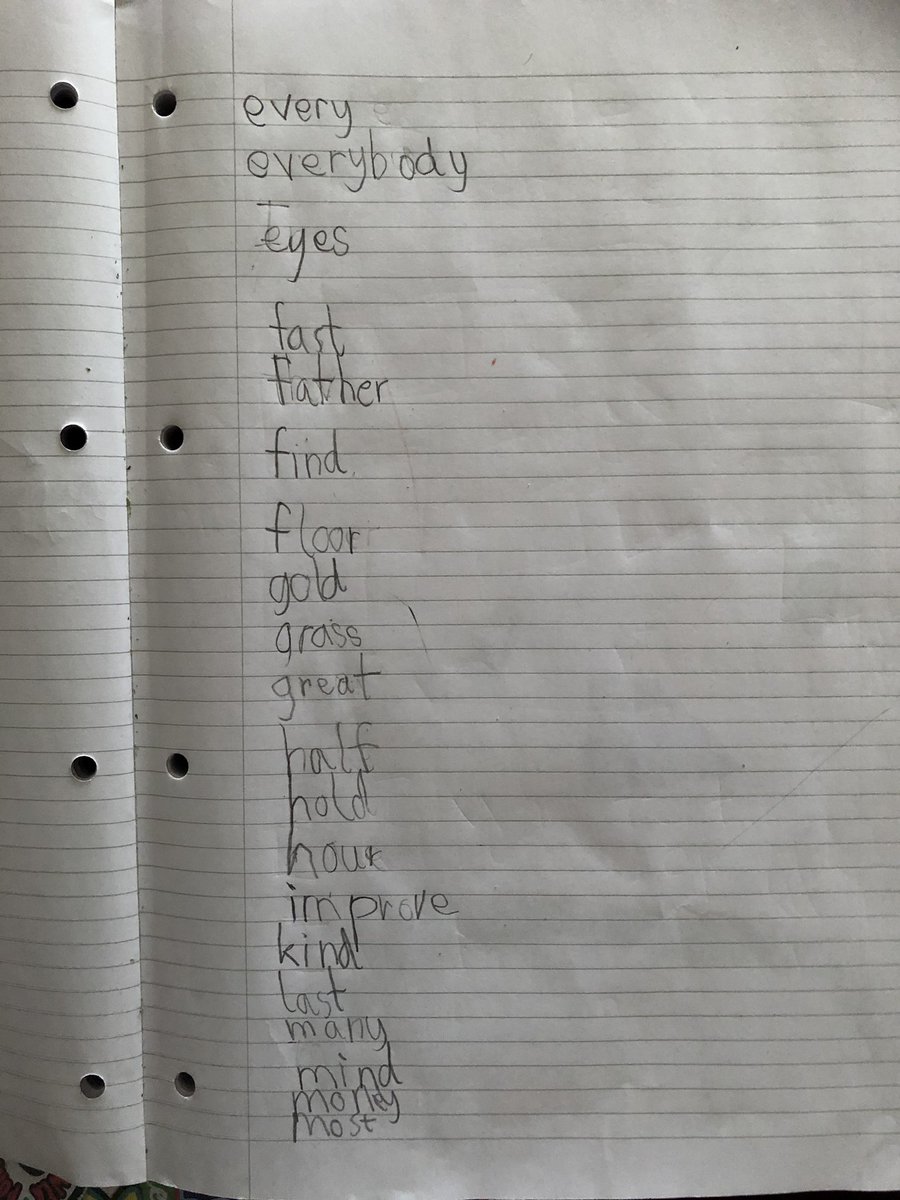 every
everybody
eyes
fast
father
find
floor
gold
grass
great
half
hold
hour
improve
kind
last
many
mind
money
most